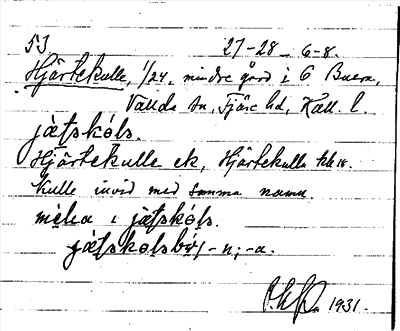 53 27-28 - 6-8.
Hjärtekulle, 1/24, mindre gård i 6 Buera,
Vallda sn, Fjäre hd, Hall. l.
jætskols.
Hjärtekulle ek, Hjärtekulle
kulle invid med samma namn.
i jætskols.
jætskolsbo, -n; -a.
1931.